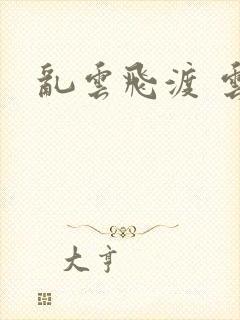 亂雲飛渡 雲
大亨